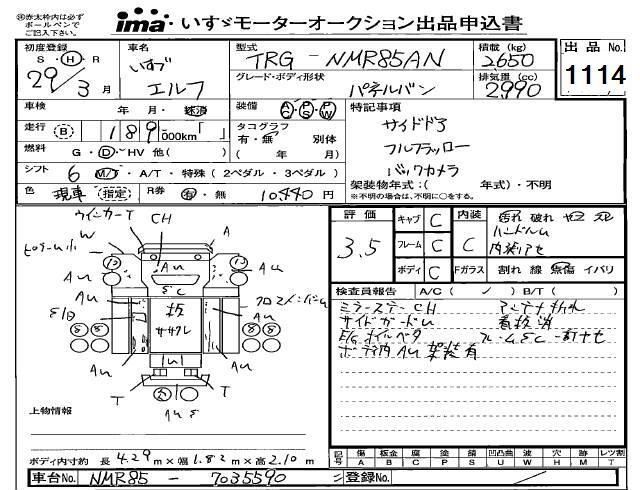 ※赤太枠内は必ず
ボールペンで
ご記入下さい。
ima いすゞモーターオークション出品申込書
初度登録 車名 型式 積載 (kg) 出品No.
S・H・R いすゞ TRG - NMR85AN 2,650
29年 3月 エルフ グレード・ボディ形状 パネルバン 排気量 (cc) 2990 1114
車検 年・月・抹消 装備 AC・PS・PW 特記事項
走行 B 189,000km「 」 タコグラフ サイドドア
有・無 別体 フルフラッロー
燃料 G・D・HV 他( ) ( 年 月) バックカメラ
シフト 6 M/T・A/T・特殊 (2ペダル・3ペダル) 架装物年式:( 年式)・不明
色 現車 (指定) R券 有・無 10,440円 ※不明の場合は、不明に○をする。
評価 3.5 キャブ C 内装 C 汚れ 破れ ヤニ
フレーム C ハンドルム
ボディ C Fガラス 割れ 線 点傷 イバリ
検査員報告 A/C( ✓ ) B/T( )
ミラーステーCH アンテナ切れ
サイドガードム 看板消
ボデー内AU 架装有
ウインカーT CH
W A
AU AU
SC
板
ササクレ
AU AU
AU AU
T T
AU S
上物情報
ボディ内寸約 長 4.29m×幅 1.82m×高 2.10m
記号 傷A 板金B 腐C 塗P 錆S 凹凸曲U 波W 穴H 跡M レツ割T
車台No. NMR85 - 7035590 登録No.